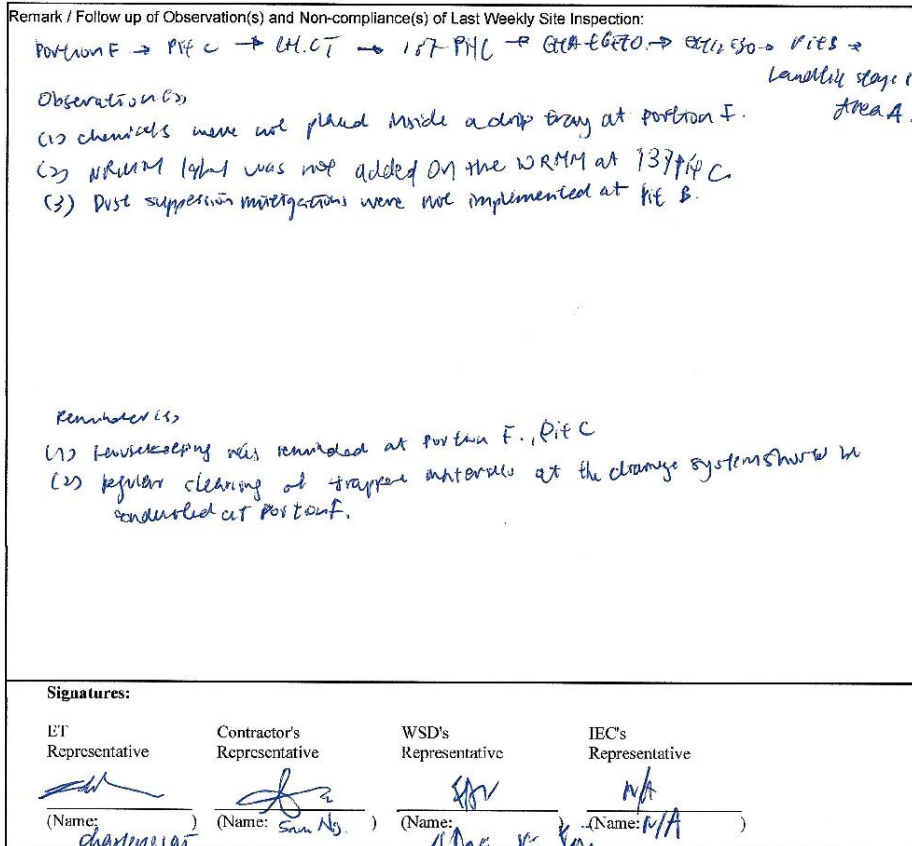 Remark / Follow up of Observation(s) and Non-compliance(s) of Last Weekly Site Inspection:
Portion F → Pit C → LH.CT → → → Pit B →
Landfill stage
Area A.
Observation(s)
(1) chemicals were not placed inside a drip tray at portion F.
(2) NRMM label was not added on the NRMM at Pit C
(3) Dust suppession were not implemented at Pit B.
Reminder(s)
(1) housekeeping was reminded at Portion F., Pit C
(2) regular cleaning of trapped materials at the drainage system should be
conducted at Portion F.
Signatures:
ET Contractor's WSD's IEC's
Representative Representative Representative Representative
N/A
(Name: ) (Name: Sam Ng. ) (Name: ) (Name: N/A )